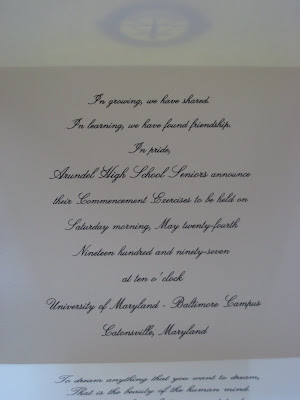 In growing, we have shared.
In learning, we have found friendship.
In pride,
Arundel High School Seniors announce
their Commencement Exercises to be held on
Saturday morning, May twenty-fourth
Nineteen hundred and ninety-seven
at ten o'clock
University of Maryland - Baltimore Campus
Catonsville, Maryland
To dream anything that you want to dream,
That is the beauty of the human mind.